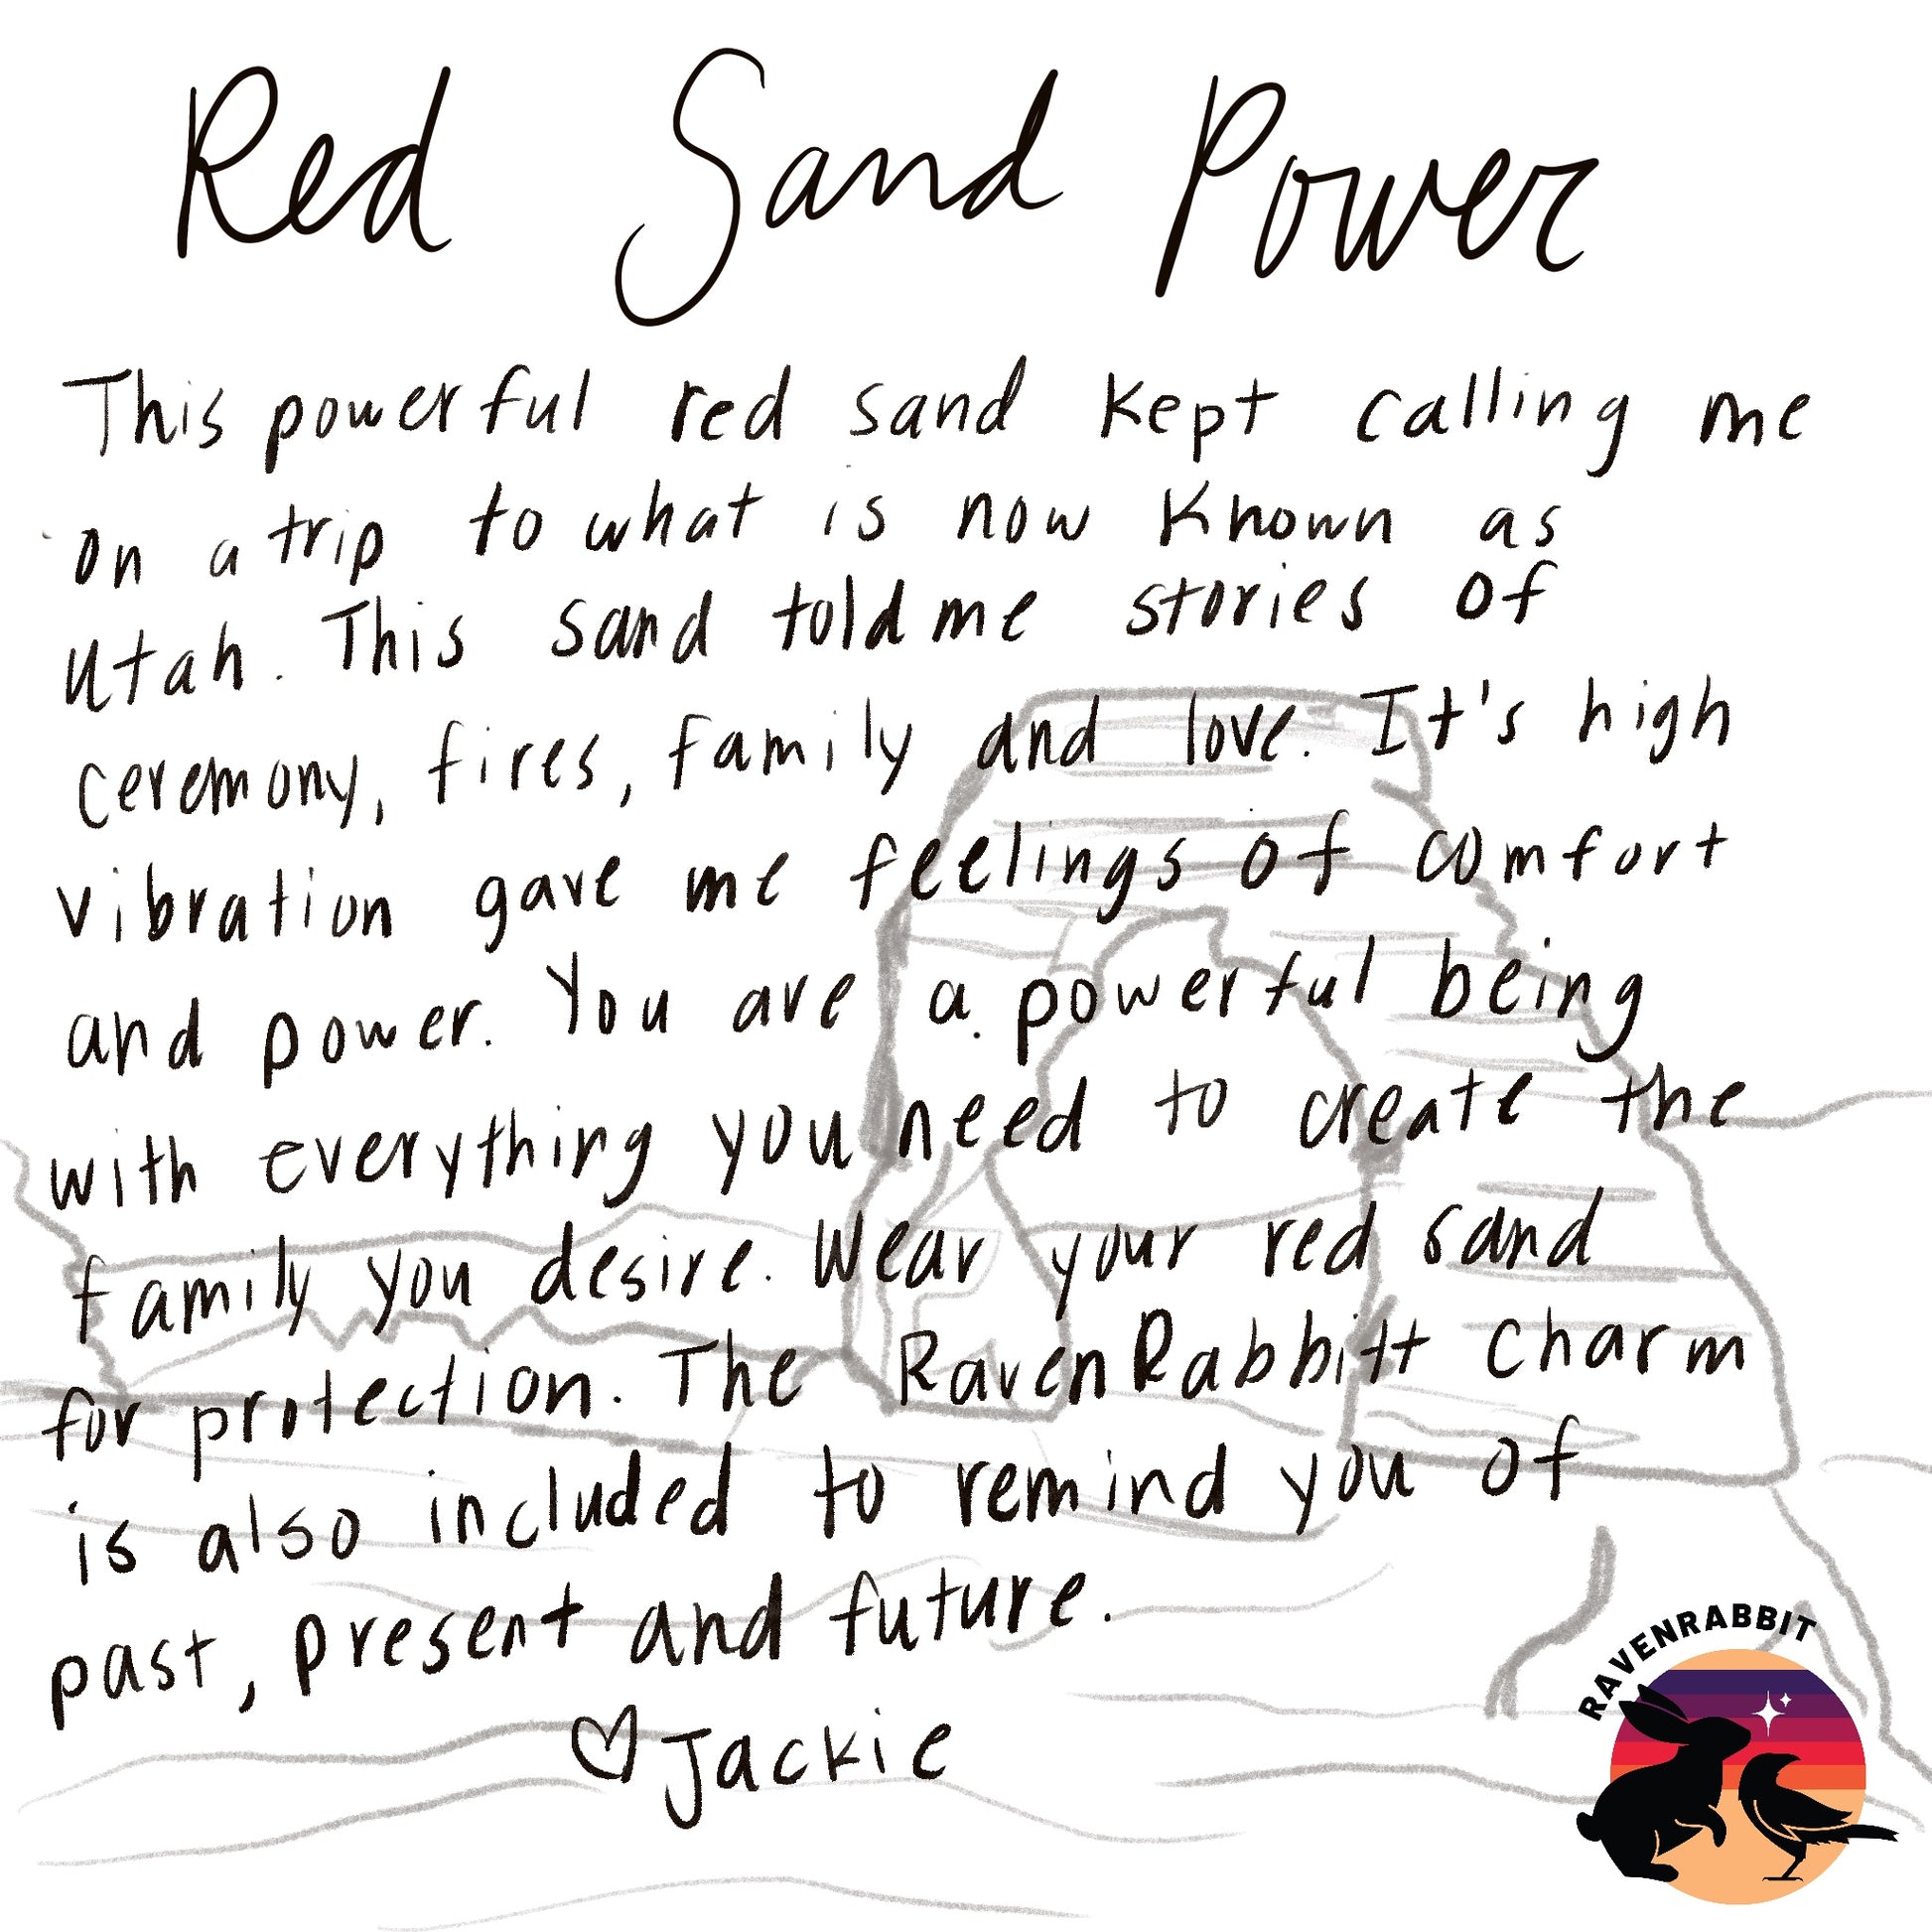 Red Sand Power
This powerful red sand kept calling me
on a trip to what is now known as
Utah. This sand told me stories of
ceremony, fires, family and love. It's high
vibration gave me feelings of comfort
and power. You are a powerful being
with everything you need to create the
family you desire. Wear your red sand
for protection. The RavenRabbitt charm
is also included to remind you of
past, present and future.
♡Jackie
RAVENRABBIT